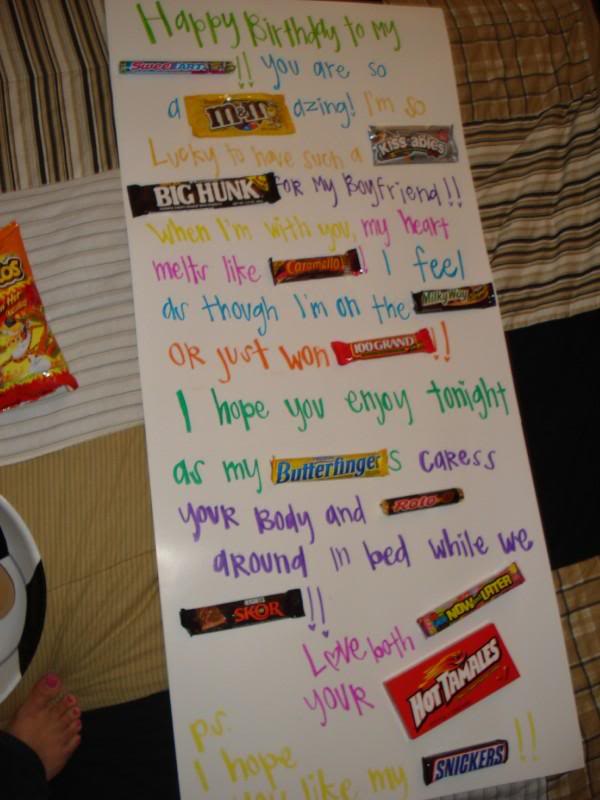 Happy Birthday to my
SweeTARTS !! You are so
a m&m's azing! I'm so
Lucky to have such a Kissables
BIG HUNK FOR My Boyfriend!!
When I'm with you, my heart
melts like Caramello! I feel
as though I'm on the Milky Way
OR just won 100 GRAND !!
I hope you enjoy tonight
as my Butterfinger s caress
your Body and Rolo
around in bed while we
SKOR !!
Love both NOW and LATER
your HOT TAMALES
ps.
I hope
you like my SNICKERS !!